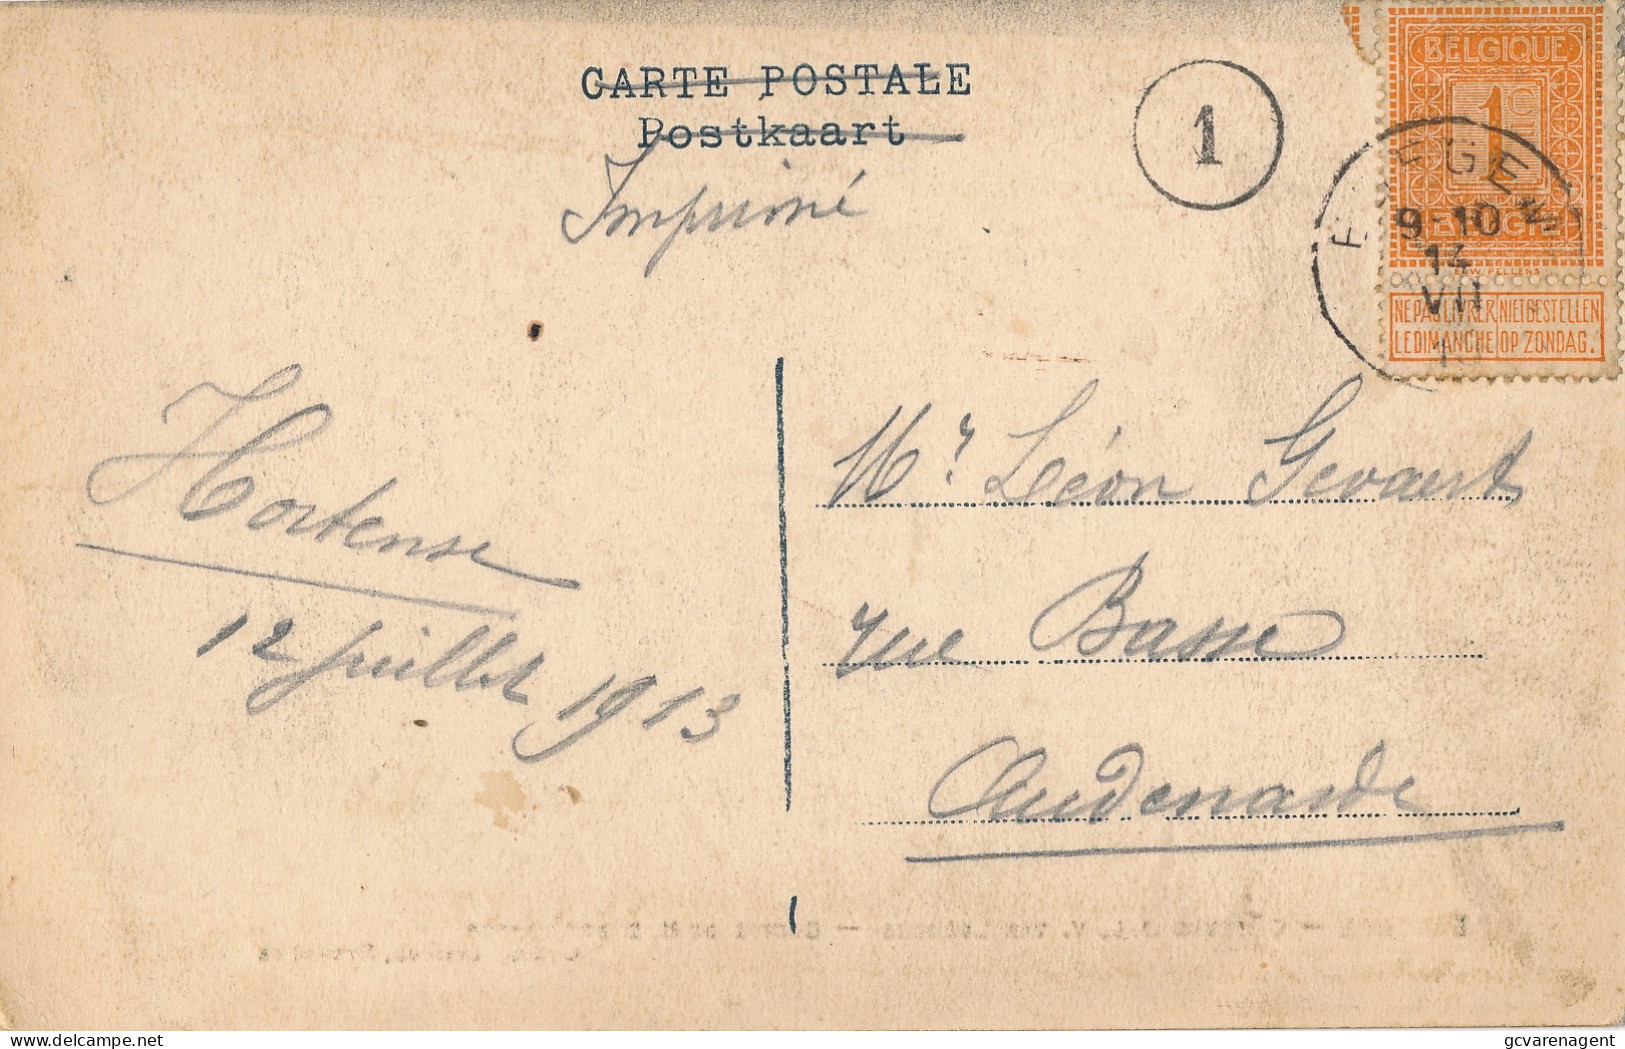 CARTE POSTALE
Postkaart
Imprimé
1
BELGIQUE
1c
BELGIË
EDW. PELLENS
NE PAS LIVRER LE DIMANCHE
NIET BESTELLEN OP ZONDAG.
9-10
14
VII
Hortense
12 juillet 1913
Mr Léon Gevaert
rue Basse
Audenarde
gcvarenagent